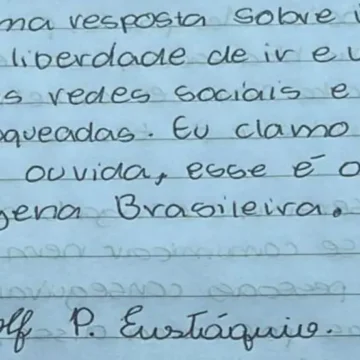 ma resposta sobre i
liberdade de ir e v
s redes sociais e
queadas. Eu clamo
ouvida, esse é o
gena Brasileira.
olf P. Eustáquio.